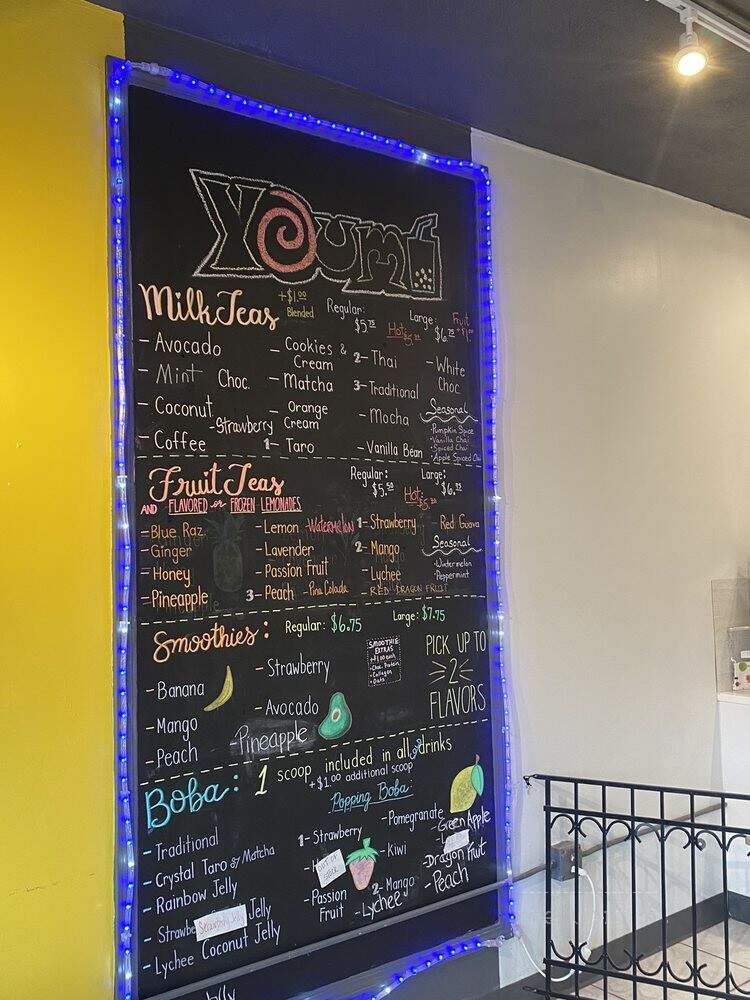 Youmi
Milk Teas +$1.00 Blended Regular: $5.75 Hot Large: $6.75 Fruit +$1.00
- Avocado
- Mint Choc.
- Coconut
- Coffee
- Cookies & Cream
- Matcha
- Orange Cream
- Strawberry
1- Taro
2- Thai
3- Traditional
- Mocha
- Vanilla Bean
- White Choc
Seasonal
Pumpkin Spice
Vanilla Chai
Spiced Chai
Apple Spiced Chai
Fruit Teas Regular: $5.50 Hot: Large: $6.25
AND FLAVORED or FROZEN LEMONADES
- Blue Raz
- Ginger
- Honey
- Pineapple
- Lemon
- Watermelon
- Lavender
- Passion Fruit
3- Peach
- Pina Colada
1- Strawberry
2- Mango
Lychee
RED DRAGON FRUIT
- Red Guava
Seasonal
Watermelon
Peppermint
Smoothies: Regular: $6.75 Large: $7.75
- Banana
- Mango
- Peach
- Strawberry
- Avocado
- Pineapple
SMOOTHIE EXTRAS
+$1.00 each
Choc. Protein
Collagen
Oats
PICK UP TO
2
FLAVORS
Boba: 1 scoop included in all drinks
+$1.00 additional scoop
- Traditional
- Crystal Taro or Matcha
- Rainbow Jelly
- Strawbe Strawberry Jelly Jelly
- Lychee Coconut Jelly
Jelly
Popping Boba
1- Strawberry
OUT OF STOCK
- Passion Fruit
- Lychee
- Pomegranate
- Kiwi
2- Mango
- Green Apple
- Dragon Fruit
- Peach